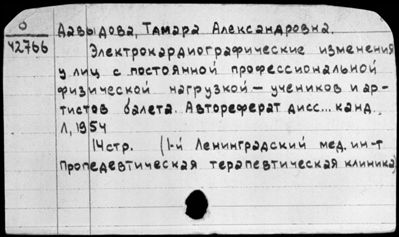 0
42766
Давыдова, Тамара Александровна.
Электрокардиографические изменения
у лиц с постоянной профессиональной
физической нагрузкой — учеников и ар-
тистов балета. Автореферат дисс... канд.
Л, 1954
14стр. (1-й Ленинградский мед. ин-т
Пропедевтическая терапевтическая клиника)